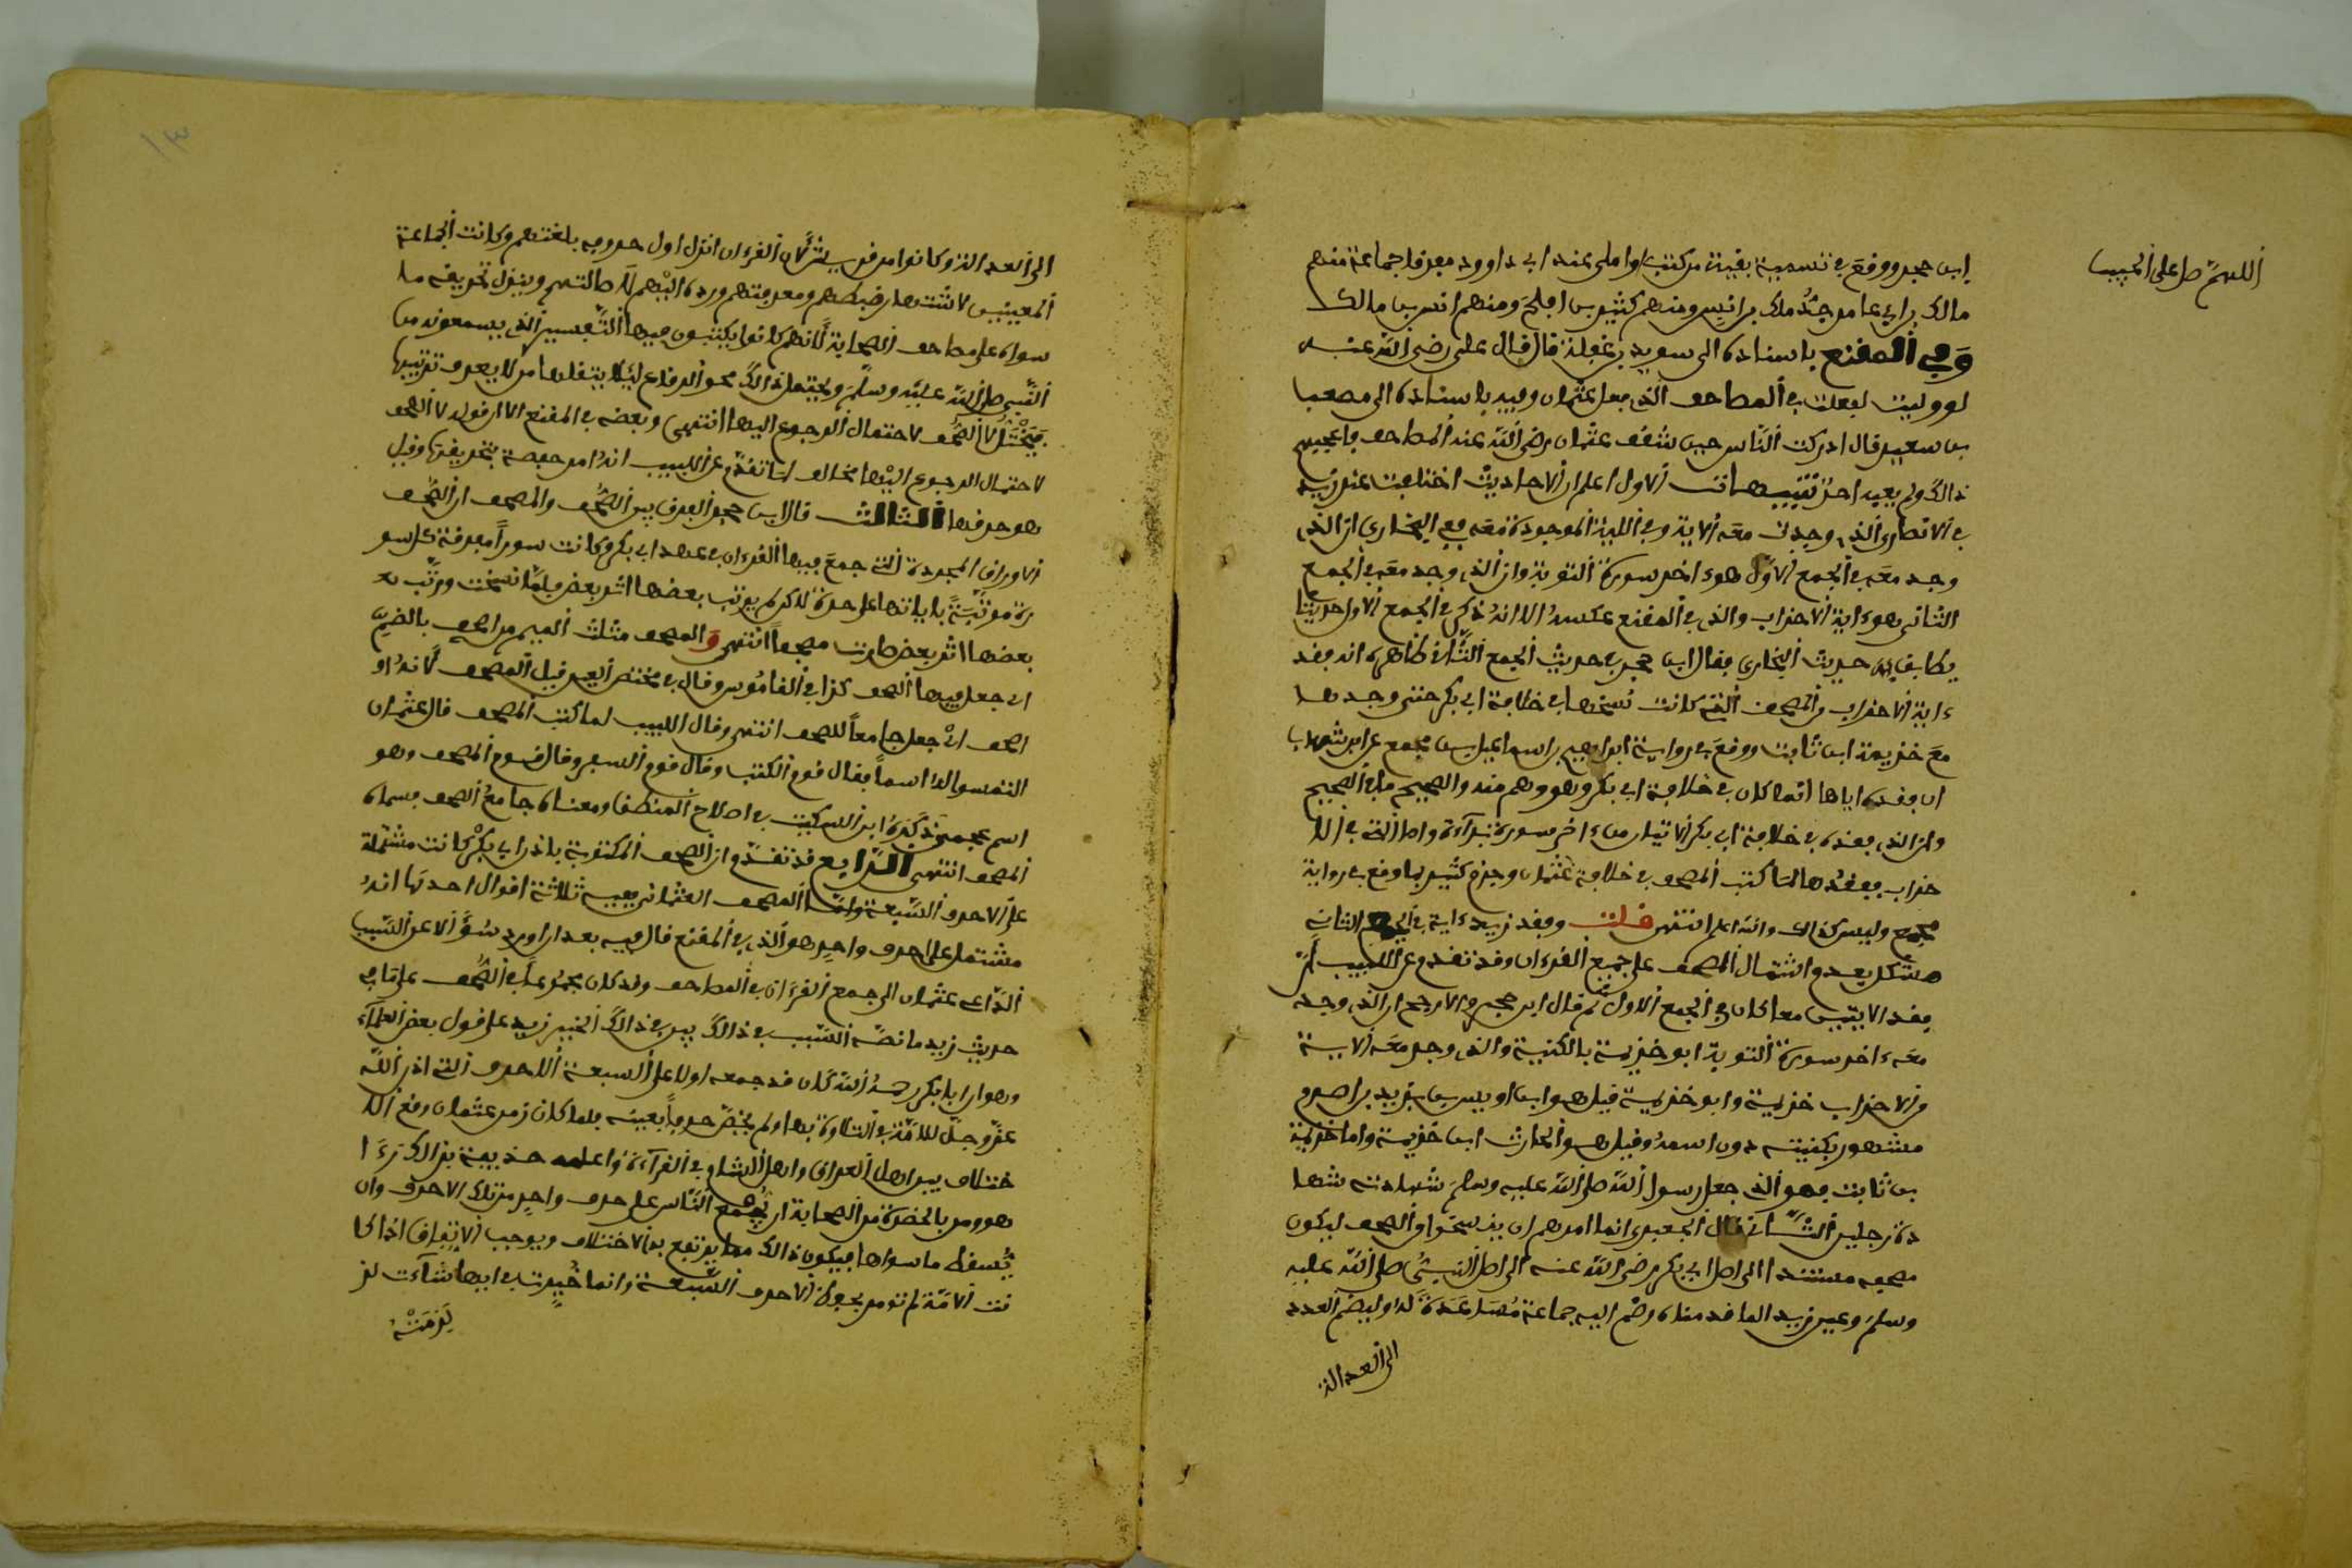 اللهمّ صل على الحبيب
ابن حجر ووقع في تسمية بقية من كتب او املى عند ابي داوود مفرقا جماعة منهم
مالك بن ابي عامر جدّ ملك بن انس ومنهم كثير بن افلح ومنهم انس بن مالك
وفي المقنع باسناده الى سويد بن غفلة قال قال علي رضي الله عنه
لو وليت لفعلت في المصاحف الذي فعل عثمان وفيه باسناده الى مصعب
بن سعيد قال ادركت الناس حين شقق عثمان رضي الله عنه المصاحف فاعجبهم
ذالك ولم يعبه احد تنبيهات الاول اعلم ان الاحاديث اختلفت عن زيد
في الانصاري الذي وجدت معه الاية وفي الليلة الموجودة معه ففي البخاري ان الذي
وجد معه في الجمع الاول هو ءاخر سورة التوبة وان الذي وجد معه في الجمع
الثاني هو ءاية الاحزاب والذي في المقنع عكسه الا انه ذكر في الجمع الاول حديثا
يطابق حديث البخاري فقال ابن حجر في حديث الجمع الثاني ظاهره انه فقد
ءاية الاحزاب من الصحف التي كانت نسخها في خلافة ابي بكر حتى وجدها
مع خزيمة ابن ثابت ووقع في رواية ابراهيم بن اسماعيل بن مجمع عن ابن شهاب
ان فقده اياها انما كان في خلافة ابي بكر وهو وهم منه والصحيح ما في الصحيح
وان الذي فقده في خلافة ابي بكر الايتان من ءاخر سورة براءة واما التي في الا
حزاب ففقدها لما كتب المصحف في خلافة عثمان وجزم كثير بما وقع في رواية
مجمع وليس كذالك والله اعلم انتهى قلت وفقد زيد ءاية في الجمع الثاني
مشكل بعد اشتمال المصحف على جميع القرءان وقد تقدم عن اللبيب ان
فقد الايتين معا كان في الجمع الاول ثم قال ابن حجر والارجح ان الذي وجد
معه ءاخر سورة التوبة ابو خزيمة بالكنية والذي وجد معه الاية
من الاحزاب خزيمة وابو خزيمة قيل هو ابن اوس بن يزيد بن اصرم
مشهور بكنيته دون اسمه وقيل هو الحارث ابن خزيمة واما خزيمة
بن ثابت فهو الذي جعل رسول الله صلى الله عليه وسلم شهادته شها
دة رجلين الثاني قال الجعبري انما امرهم ان ينسخوا من الصحف ليكون
مصحفه مستندا الى اصل ابي بكر رضي الله عنه الى اصل النبيء صلى الله عليه
وسلم وعين زيد الما قدمناه وضم اليه جماعة مساعدة له او ليضم العدد
الى العدالة
١٣
الى العدالة وكانوا من قريش لان القرءان انزل اول حروفه بلغتهم وكانت الجماعة
المعينين لاشتهار ضبطهم ومعرفتهم ورده اليهم لاصالتهم وينزل تحريفه ما
سواه على مصاحف الصحابة لانهم كانوا يكتبون فيها التفسير الذي يسمعونه من
النبي صلى الله عليه وسلم ويحتمل ذالك محو الرقاع ليلا ينقلها من لا يعرف ترتيبها
فيختل لا الصحف لاحتمال الرجوع اليها انتهى وبعضه في المقنع الا ان قوله لا الصحف
لاحتمال الرجوع اليها مخالف لما تقدم عن اللبيب انه امر حفصة بتحريقها وقيل
هو حرقها الثالث قال ابن حجر الفرق بين الصحف والمصحف ان الصحف
الاوراق المجردة التي جمع فيها القرءان في عهد ابي بكر وكانت سورا مفرقة كل سو
رة مرتبة باياتها على حدة لاكن لم يرتب بعضها اثر بعض فلما نسخت ورتب
بعضها اثر بعض صارت مصحفا انتهى والمصحف مثلث الميم من اصحف بالضم
اي جعل فيها الصحف كذا في القاموس وقال في مختصر العين قيل المصحف لانه او
اصحف اي جعل جامعا للصحف انتهى وقال اللبيب لما كتب المصحف قال عثمان
التمسوا له اسما فقال قوم الكتب وقال قوم السفر وقال قوم المصحف وهو
اسم عجمي ذكره ابن السكيت في اصلاح المنطق ومعناه جامع الصحف فسماه
المصحف انتهى الرابع قد تقدم ان الصحف المكتوبة باذن ابي بكر كانت مشتملة
على الاحرف السبعة واما المصحف العثماني ففيه ثلاثة اقوال احدها انه
مشتمل على حرف واحد هو الذي في المقنع قال فيه بعد ايراده سؤالا عن السبب
الداعي عثمان الى جمع القرءان في المصاحف وقد كان مجموعا في الصحف على ما في
حديث زيد ما نصه السبب في ذالك بين في ذالك الخبر زيد على قول بعض العلماء
وهو ان ابا بكر رحمه الله كان قد جمعه اولا على السبعة الاحرف التي اذن الله
عز وجل للامة في التلاوة بها ولم يخص حرفا بعينه فلما كان زمن عثمان وقع الا
ختلاف بين اهل العراق واهل الشام في القراءة واعلمه حذيفة بذالك رءا
هو ومن بالحضرة من الصحابة ان يجمع الناس على حرف واحد من تلك الاحرف وان
يسقط ما سواها فيكون ذالك مما يرتفع به الاختلاف ويوجب الاتفاق اذ كا
نت الامة لم تومر بحفظ الاحرف السبعة وانما خيرت في ايها شاءت لز
لزمته